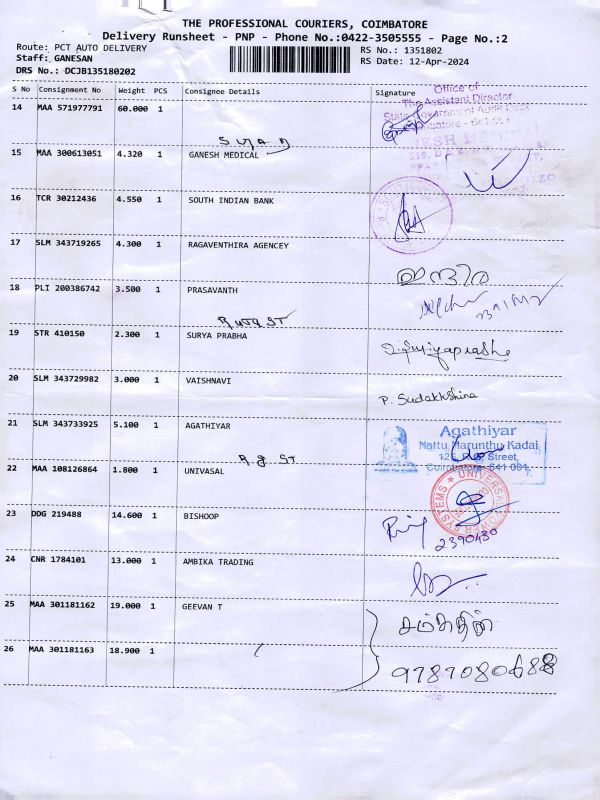 THE PROFESSIONAL COURIERS, COIMBATORE
Delivery Runsheet - PNP - Phone No.:0422-3505555 - Page No.:2
Route: PCT AUTO DELIVERY RS No.: 1351802
Staff: GANESAN RS Date: 12-Apr-2024
DRS No.: DCJB135180202
S No Consignment No Weight PCS Consignee Details Signature
Office of
The Assistant Director
14 MAA 571977791 60.000 1
State Government Audit Dept
15 MAA 300613051 4.320 1 GANESH MEDICAL
16 TCR 30212436 4.550 1 SOUTH INDIAN BANK
17 SLM 343719265 4.300 1 RAGAVENTHIRA AGENCEY
18 PLI 200386742 3.500 1 PRASAVANTH
19 STR 410150 2.300 1 SURYA PRABHA
20 SLM 343729982 3.000 1 VAISHNAVI
P. Sudakkshina
21 SLM 343733925 5.100 1 AGATHIYAR
Agathiyar
Nattu Marunthu Kadai
Street,
Coimbatore - 641 001.
R.G ST
22 MAA 108126864 1.800 1 UNIVASAL
23 DDG 219488 14.600 1 BISHOOP
2390430
24 CNR 1784101 13.000 1 AMBIKA TRADING
25 MAA 301181162 19.000 1 GEEVAN T
26 MAA 301181163 18.900 1